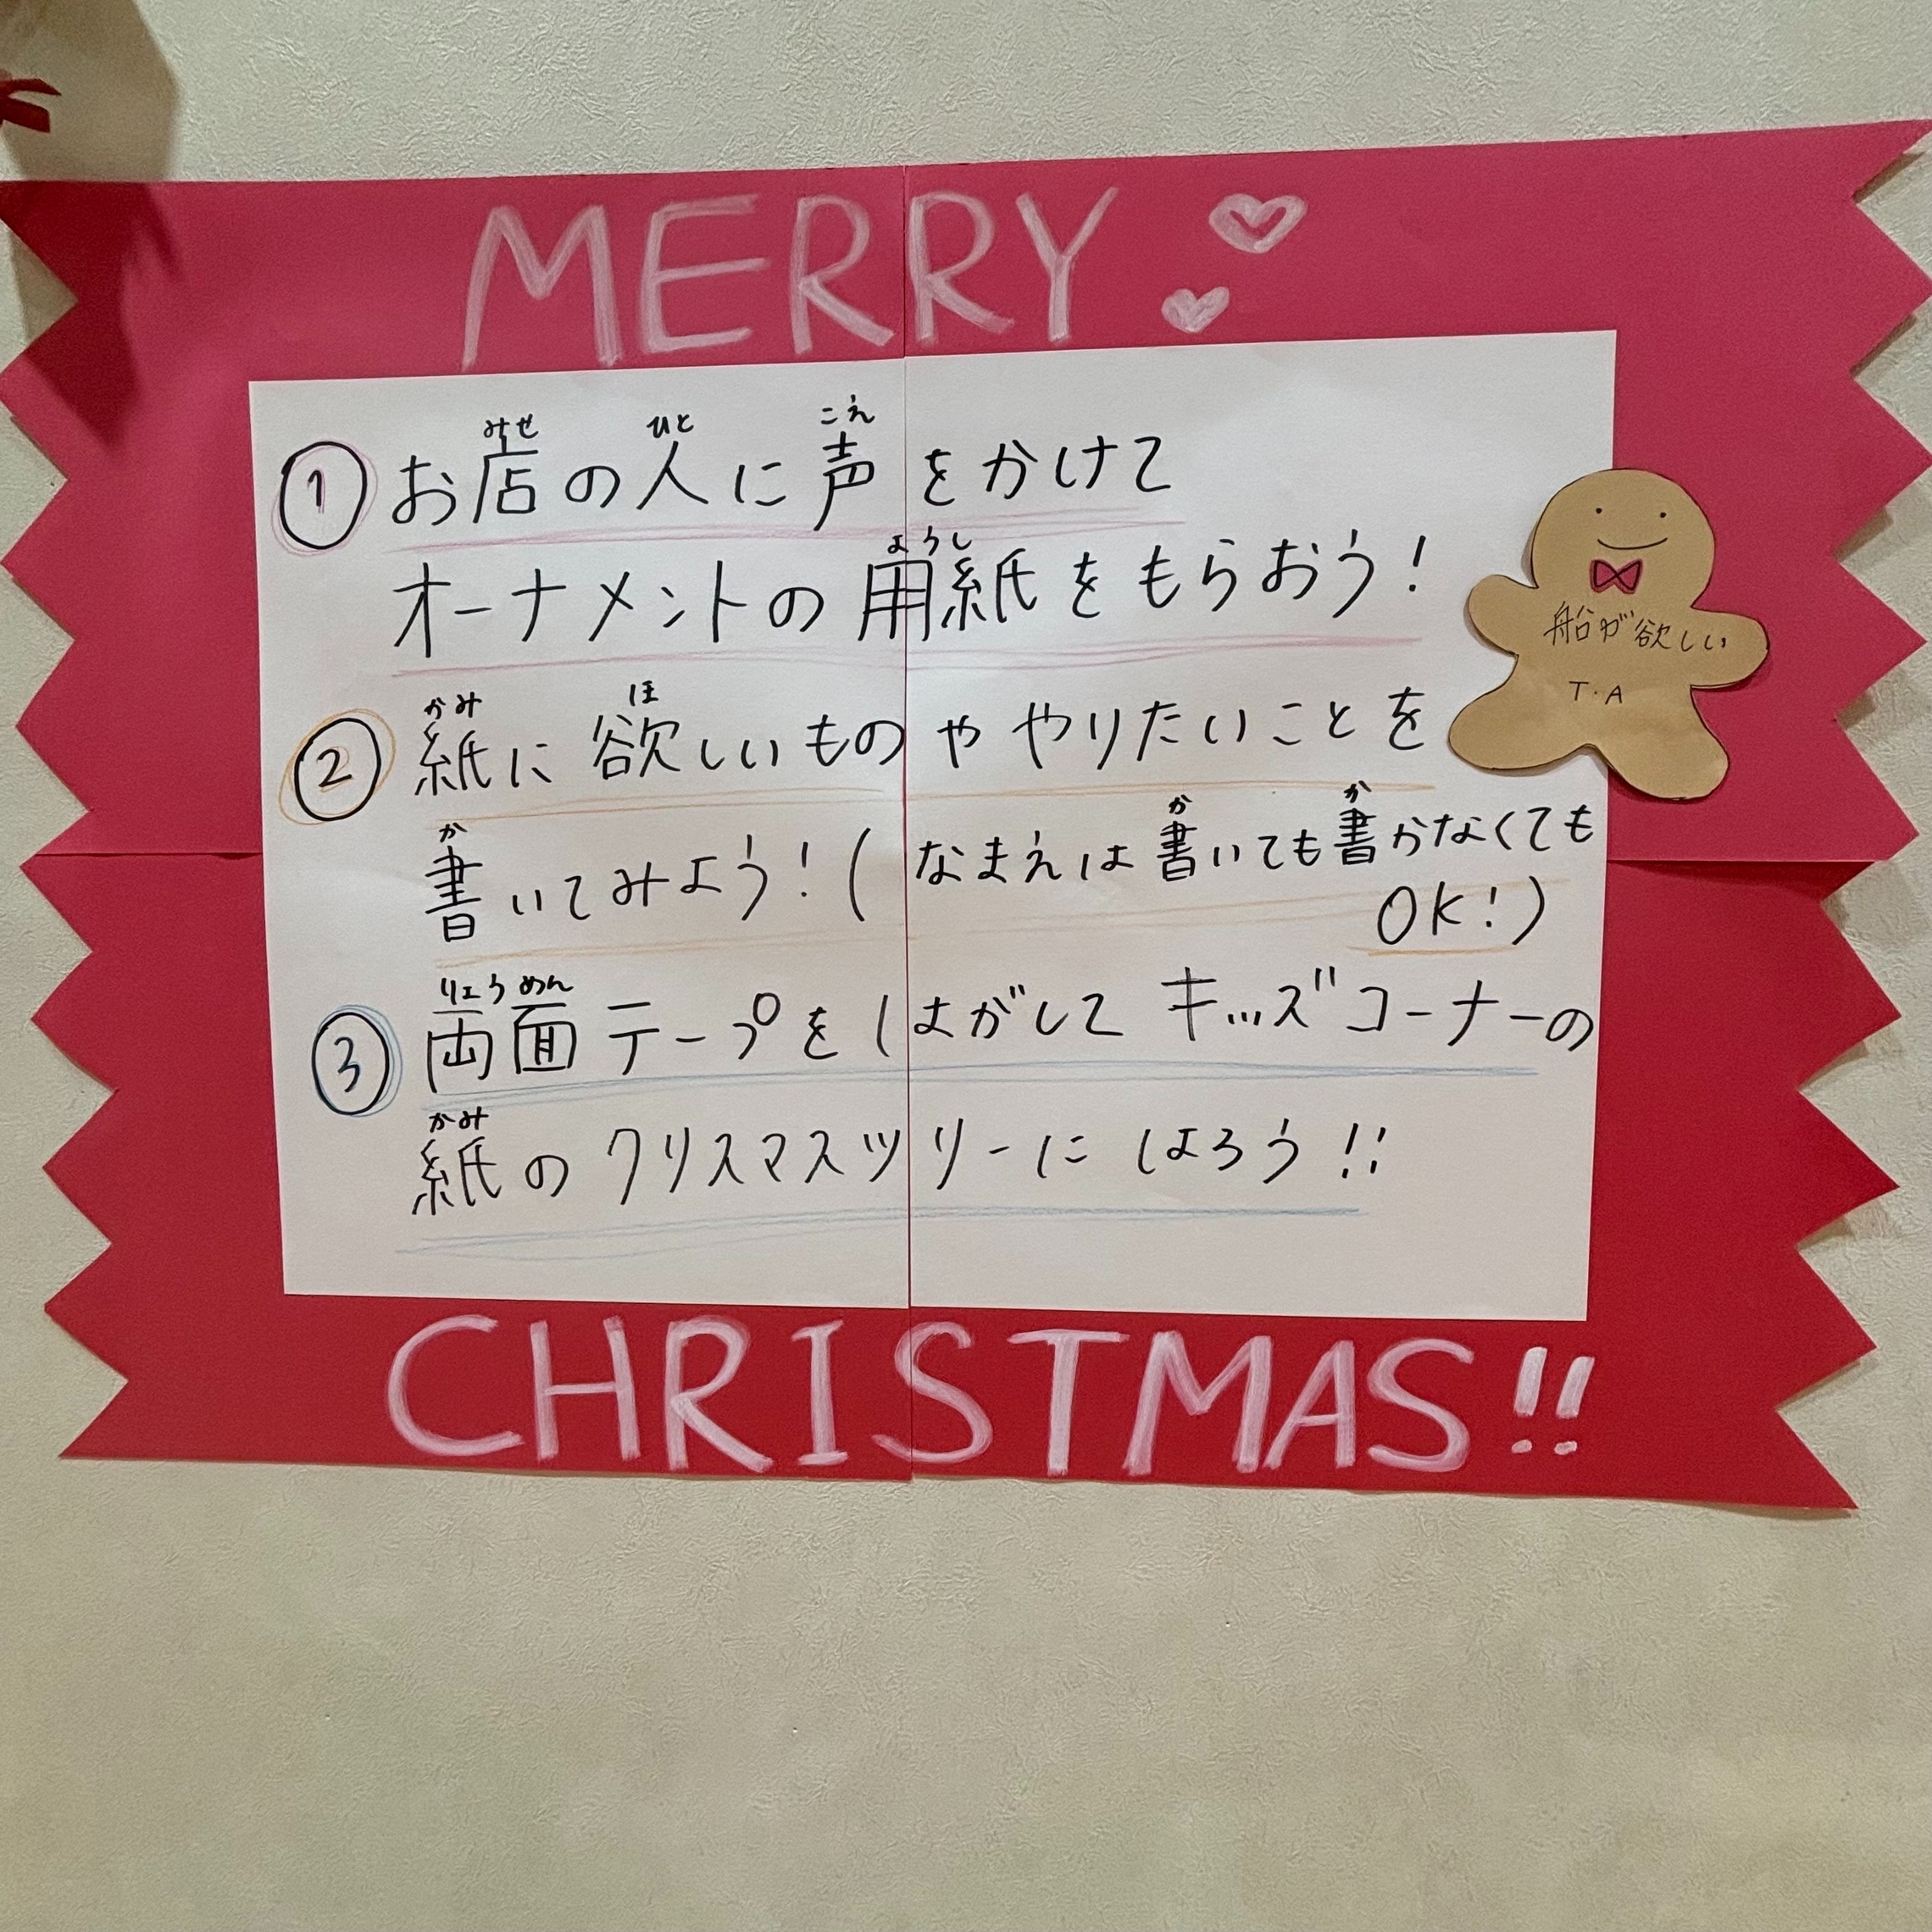 MERRY
① お店の人に声をかけて
オーナメントの用紙をもらおう!
② 紙に欲しいものややりたいことを
書いてみよう!(なまえは書いても書かなくても
OK!)
③ 両面テープをはがしてキッズコーナーの
紙のクリスマスツリーにはろう!!
船が欲しい
T.A
CHRISTMAS!!